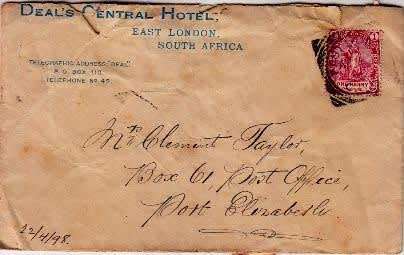 DEAL'S CENTRAL HOTEL,
EAST LONDON,
SOUTH AFRICA
TELEGRAPHIC ADDRESS "DEAL"
P.O. BOX 110.
TELEPHONE No 45.
Clement Taylor,
Box 61, Post Office,
Port Elizabeth
22/4/98.